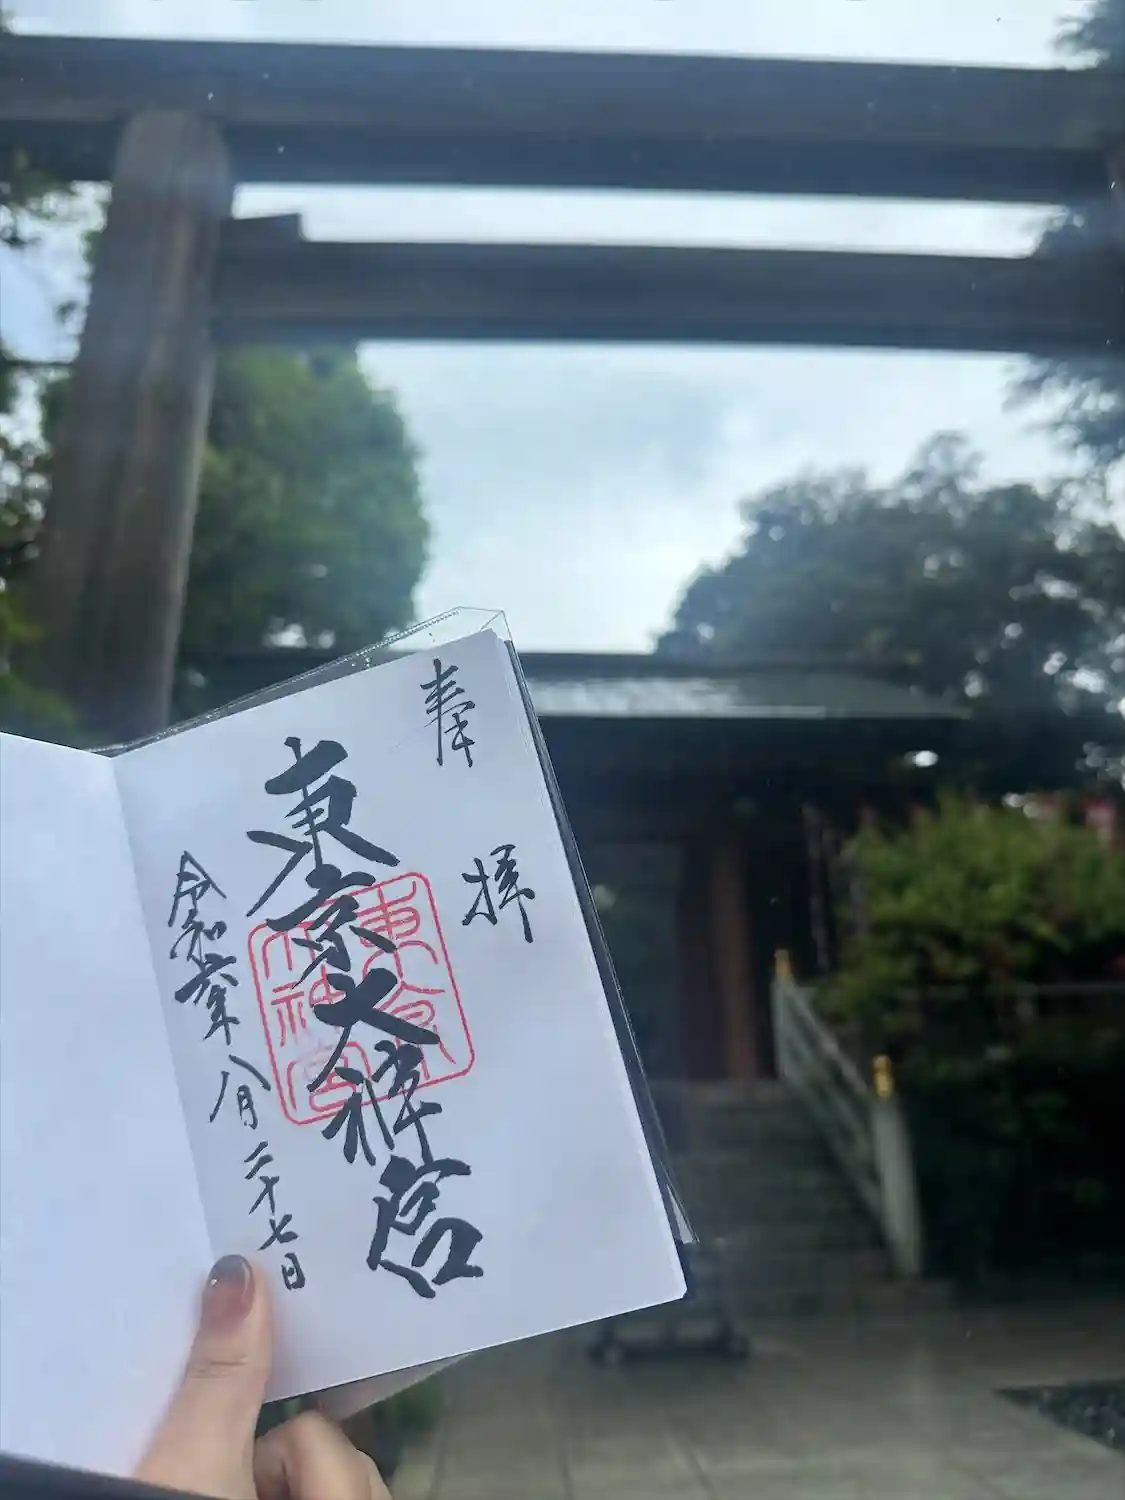 奉拝
東京大神宮
東京大神宮
令和六年八月二十七日